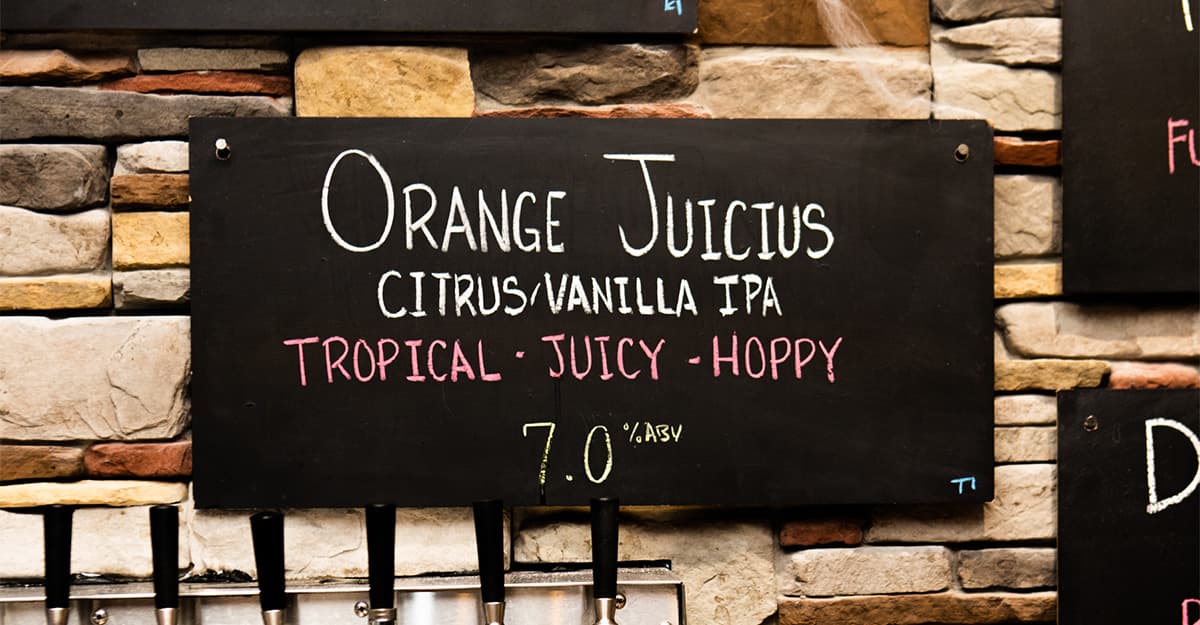 ORANGE JUICIUS
CITRUS/VANILLA IPA
TROPICAL · JUICY - HOPPY
7.0 %ABV